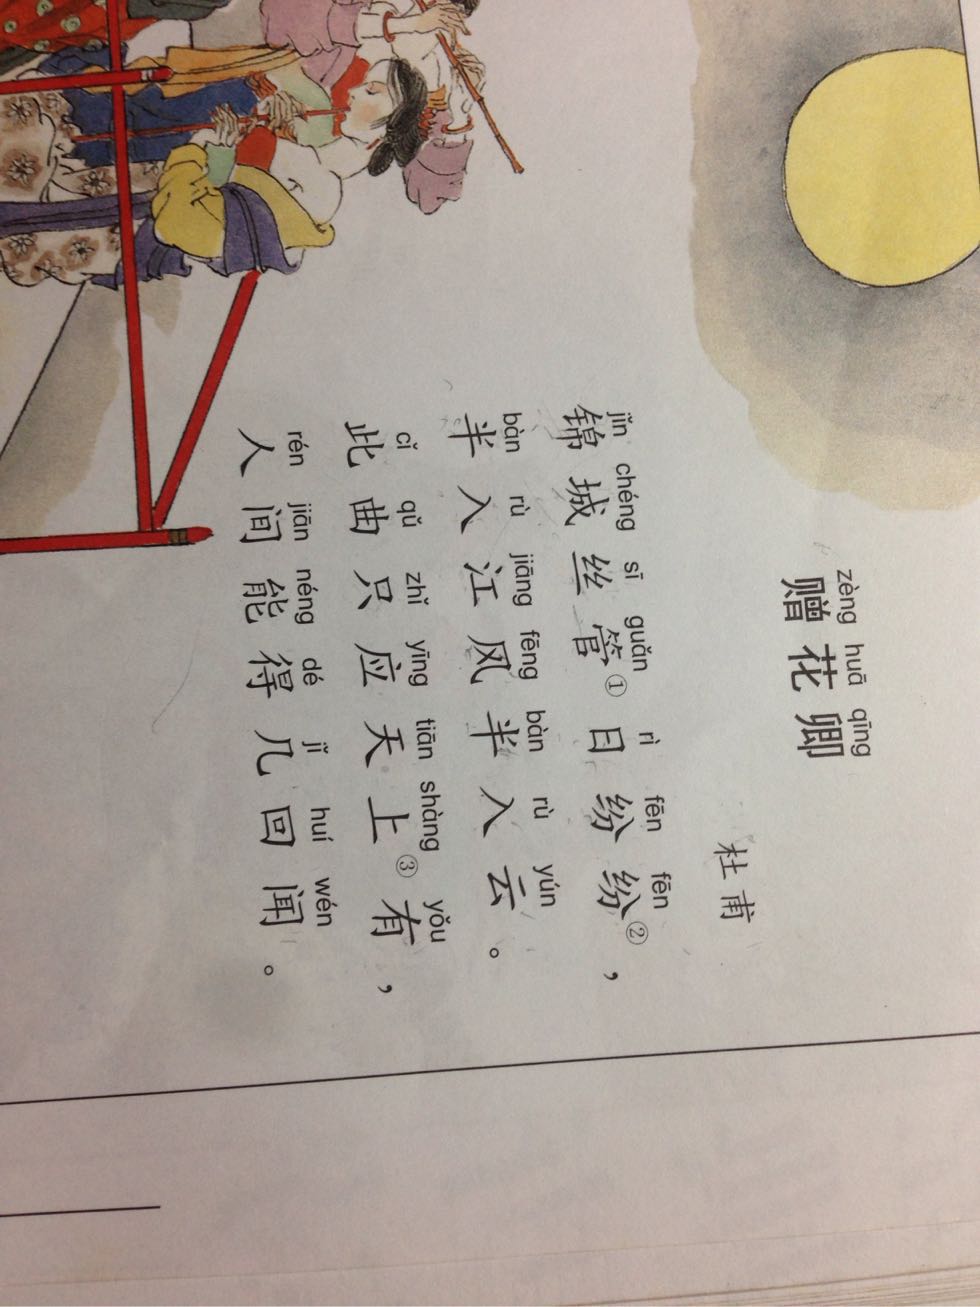 zèng huā qīng
赠花卿
杜甫
jǐn chéng sī guǎn rì fēn fēn
锦城丝管①日纷纷②，
bàn rù jiāng fēng bàn rù yún
半入江风半入云。
cǐ qǔ zhǐ yīng tiān shàng yǒu
此曲只应天上③有，
rén jiān néng dé jǐ huí wén
人间能得几回闻。